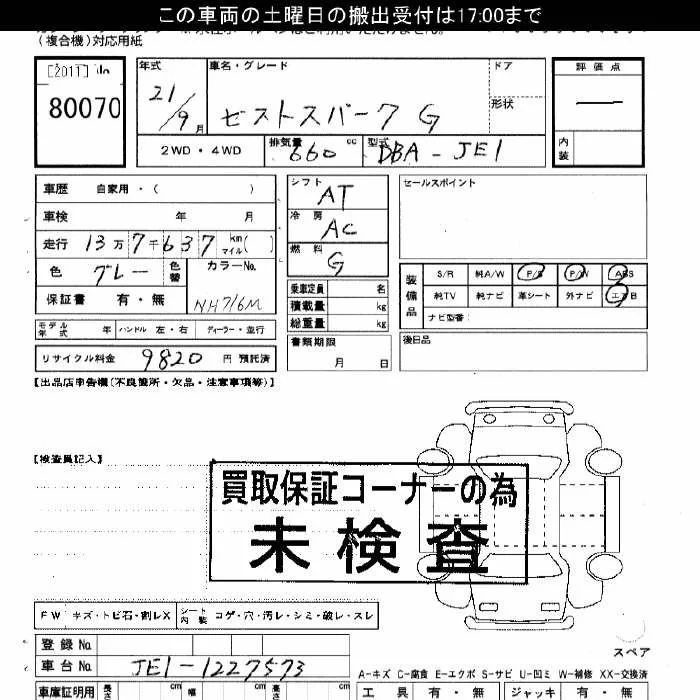 この車両の土曜日の搬出受付は17:00まで
(複合機)対応用紙
[2011] No
80070
年式
21/9月
車名・グレード
ゼストスパーク G
ドア
形状
評価点
内装
2WD・4WD
排気量 660 cc
型式 DBA-JE1
車歴 自家用・( )
車検 年 月
走行 13万7千637 km マイル( )
色 グレー 色替
カラーNo. NH716M
保証書 有・無
シフト AT
冷房 AC
燃料 G
乗車定員 名
積載量 kg
総重量 kg
セールスポイント
装備品
S/R 純A/W P/S P/W ABS
純TV 純ナビ 革シート 外ナビ エアB
ナビ型番:
モデル年式 年 ハンドル 左・右 ディーラー・並行
リサイクル料金 9820 円 預託済
書類期限 月 日
後日品
【出品店申告欄(不良箇所・欠品・注意事項等)】
【検査員記入】
買取保証コーナーの為
未検査
FW キズ・トビ石・割レX
シート内装 コゲ・穴・汚レ・シミ・破レ・スレ
登録No.
車台No. JE1-1227573
スペア
A-キズ C-腐食 E-エクボ S-サビ U-凹ミ W-補修 XX-交換済
車庫証明用 長さ cm 幅 cm 高さ cm
工具 有・無 ジャッキ 有・無